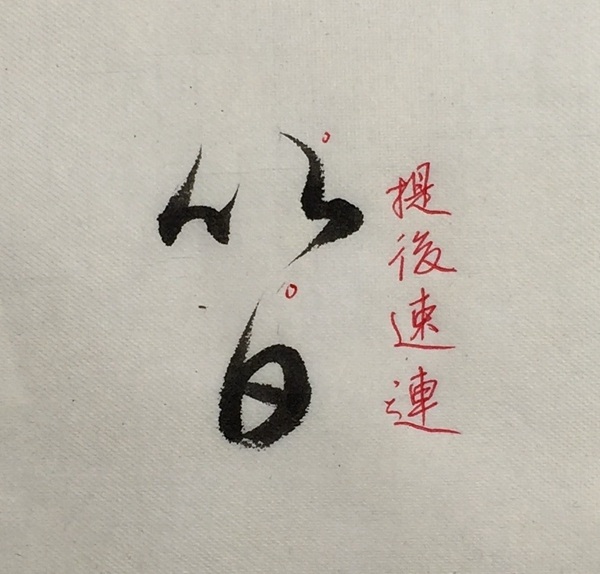 提後速連